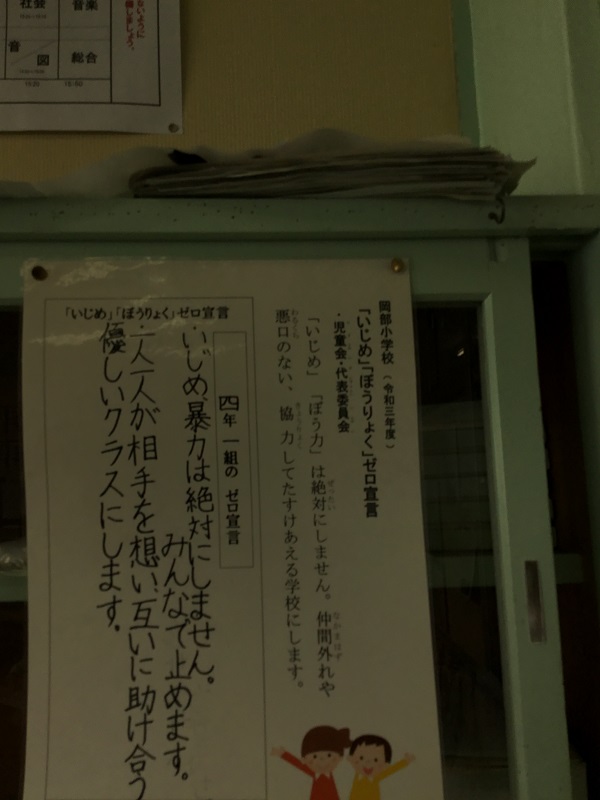 社会
音楽
音
図
総合
ないように
しましょう。
岡部小学校（令和三年度）
「いじめ」「ぼうりょく」ゼロ宣言
・児童会・代表委員会
「いじめ」「ぼう力」は絶対にしません。仲間外れや
悪口のない、協力してたすけあえる学校にします。
「いじめ」「ぼうりょく」ゼロ宣言
四年 一組の ゼロ宣言
・いじめ、暴力は絶対にしません。
みんなで止めます。
・一人一人が相手を想い、互いに助け合う
優しいクラスにします。